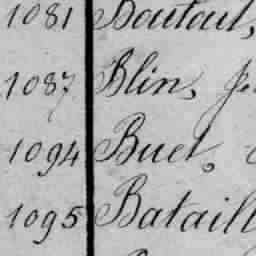 1081 Boutout,
1087 Blin,
1094 Buet,
1095 Bataill